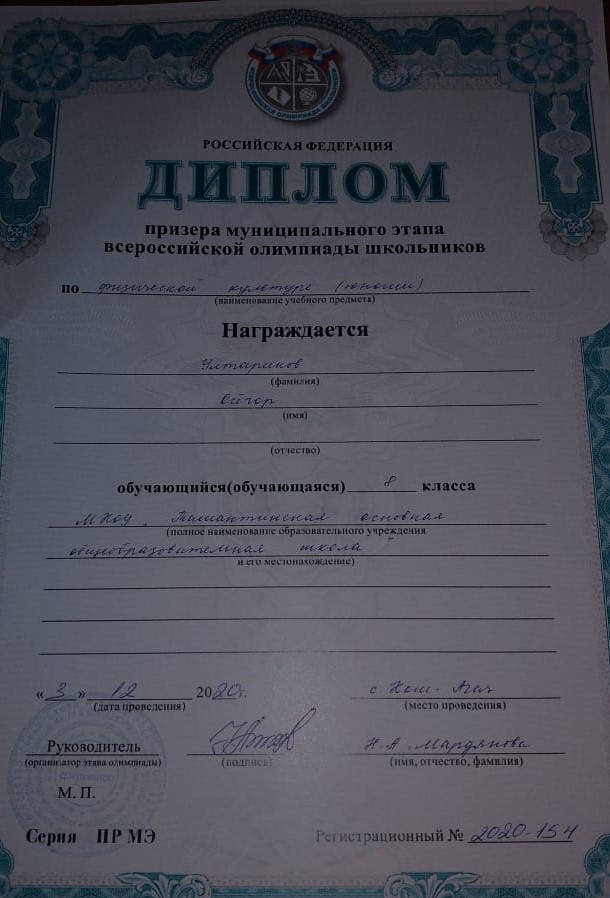 РОССИЙСКАЯ ФЕДЕРАЦИЯ
ДИПЛОМ
призера муниципального этапа
всероссийской олимпиады школьников
по физической культуре (юноши)
(наименование учебного предмета)
Награждается
Ултариков
(фамилия)
Ойгор
(имя)
(отчество)
обучающийся(обучающаяся) 8 класса
МКОУ основная
(полное наименование образовательного учреждения
общеобразовательная школа
и его местонахождение)
«3» 12 2020г. с. Кош-Агач
(дата проведения) (место проведения)
Руководитель Н.А. Мардянова
(организатор этапа олимпиады) (подпись) (имя, отчество, фамилия)
М. П.
Серия ПР МЭ Регистрационный № 2020-154